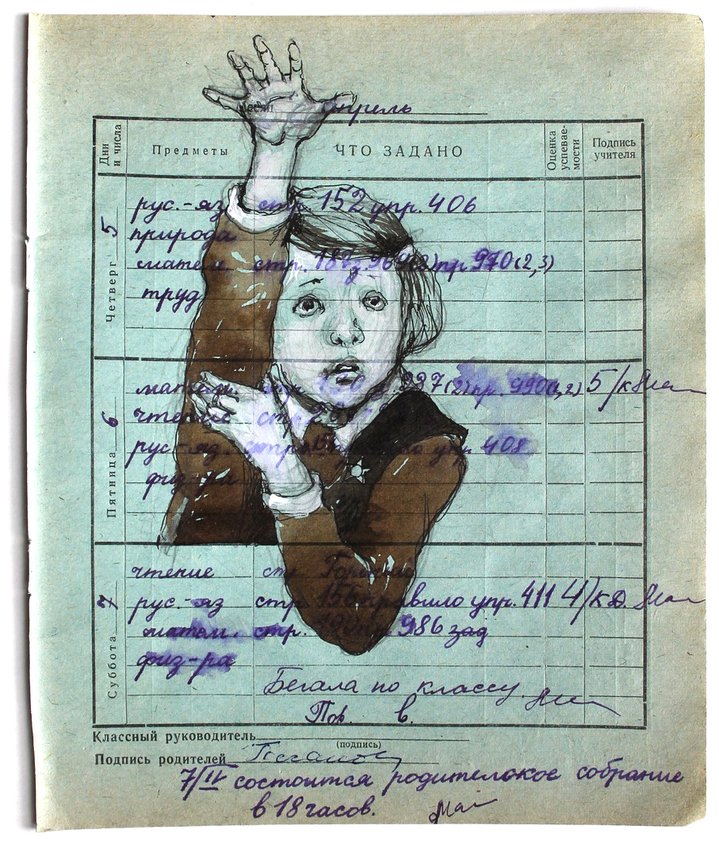 апрель
Дни и числа Предметы ЧТО ЗАДАНО Оценка успевае-мости Подпись учителя
Четверг 5
рус.-яз стр. 152 упр. 406
природа
матем. стр. 187 з. 969(2) пр 970(2,3)
труд
Пятница 6
матем. стр. 997(2) пр. 990(1,2) 5/к
чтение стр.
рус-яз. упр. 408
физ-ра
Суббота 7
чтение стр.
рус.-яз стр. 156 правило упр. 411 4/к.д.
матем. стр. 190 986 зад
физ-ра
Бегала по классу.
Пов. в.
Классный руководитель
(подпись)
Подпись родителей
7/IV состоится родительское собрание
в 18 часов.